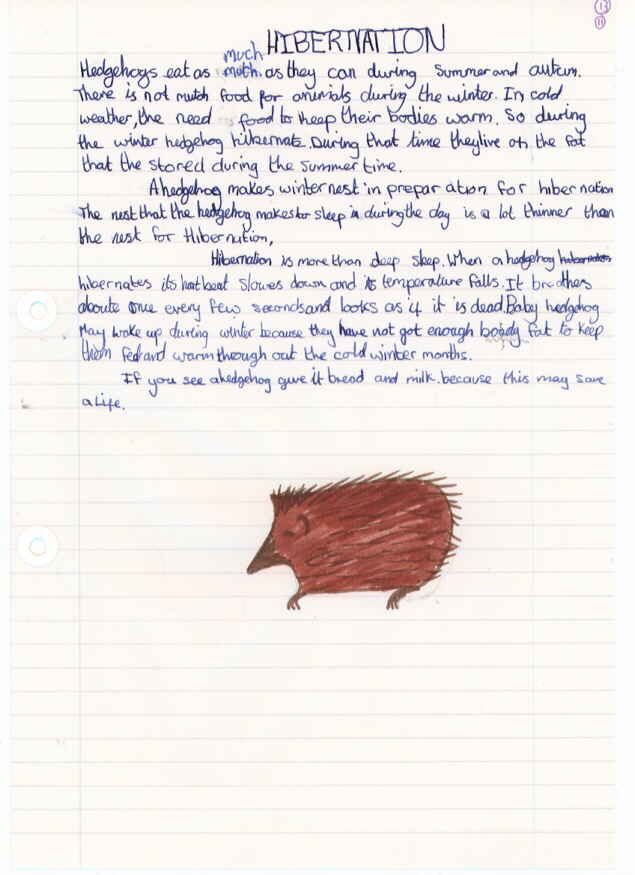 13
11
HIBERNATION
much
Hedgehogs eat as muth. as they can during Summer and autium.
There is not mutch food for animals during the winter. In cold
weather, the need food to keep their bodies warm. So during
the winter hedgehog hibernate. During that time they live on the fat
that the stored during the summer time.
A hedgehog makes winter nest in preparation for hibernation
The nest that the hedgehog makes to sleep in during the day is a lot thinner than
the nest for Hibernution,
Hibernation is more than deep sleep. When a hedgehog hibernates
hibernates its hart beat slowes down and its temperature falls. It brethes
aboute once every few seconds and looks as if it is dead. Baby hedgehog
May wake up during winter because they have not got enough boady fat to keep
them fed and warm through out the cold winter months.
If you see a hedgehog give it bread and milk. because this may save
a life.